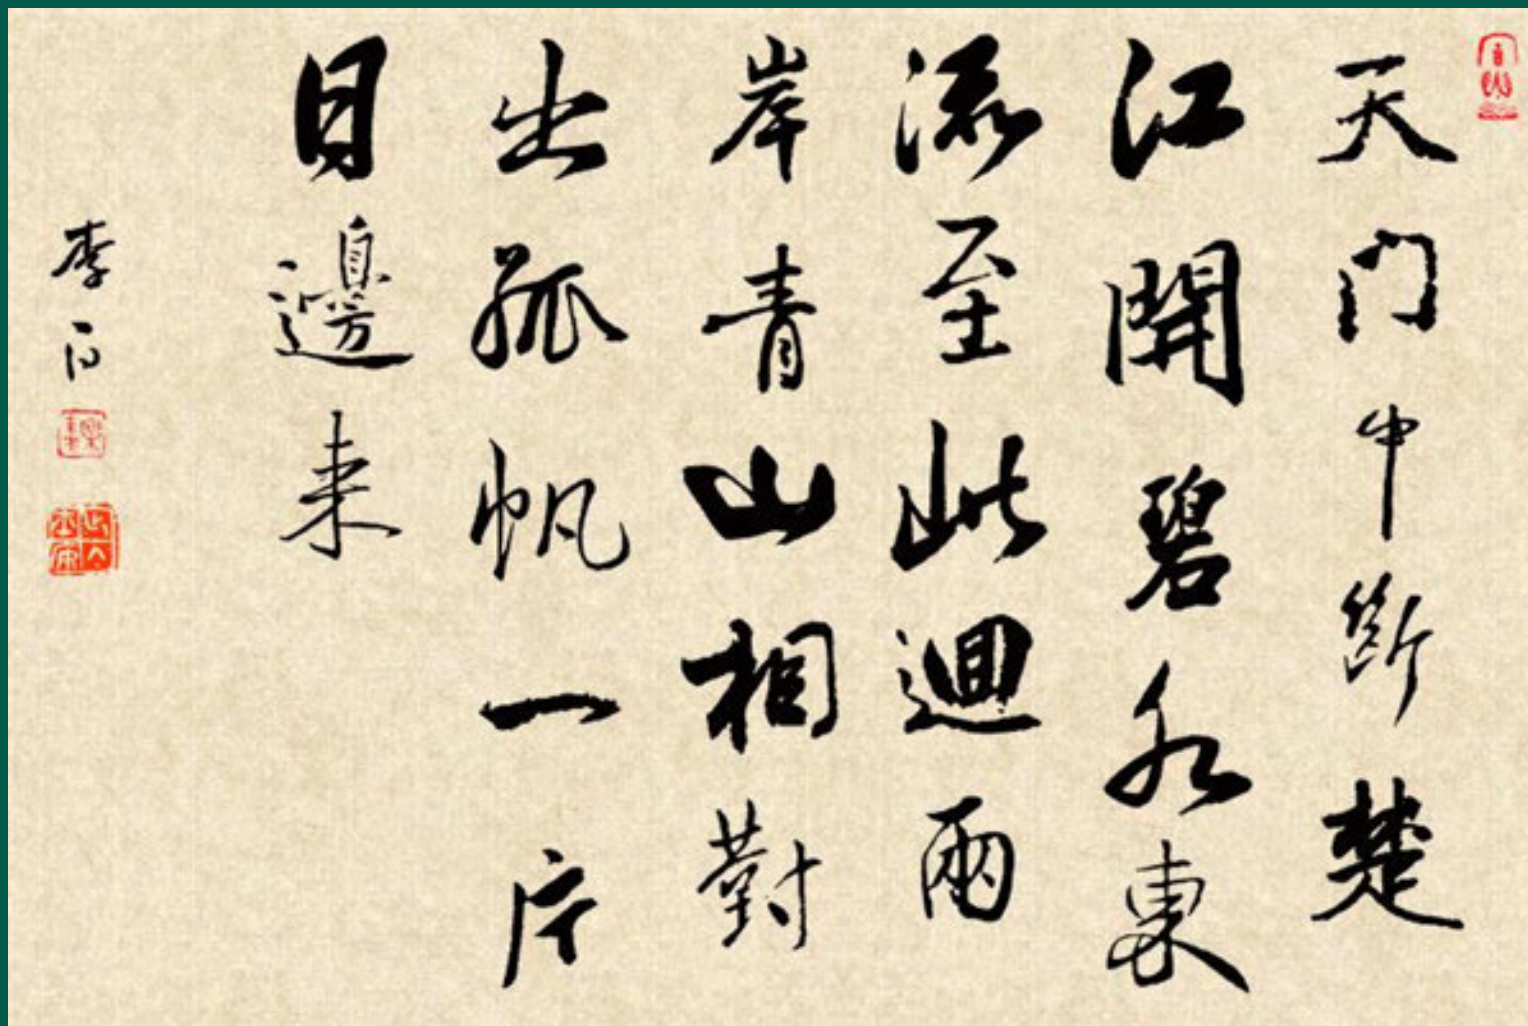 天门中断楚
江開碧水東
流至此迴兩
岸青山相對
出孤帆一片
日邊来
李白